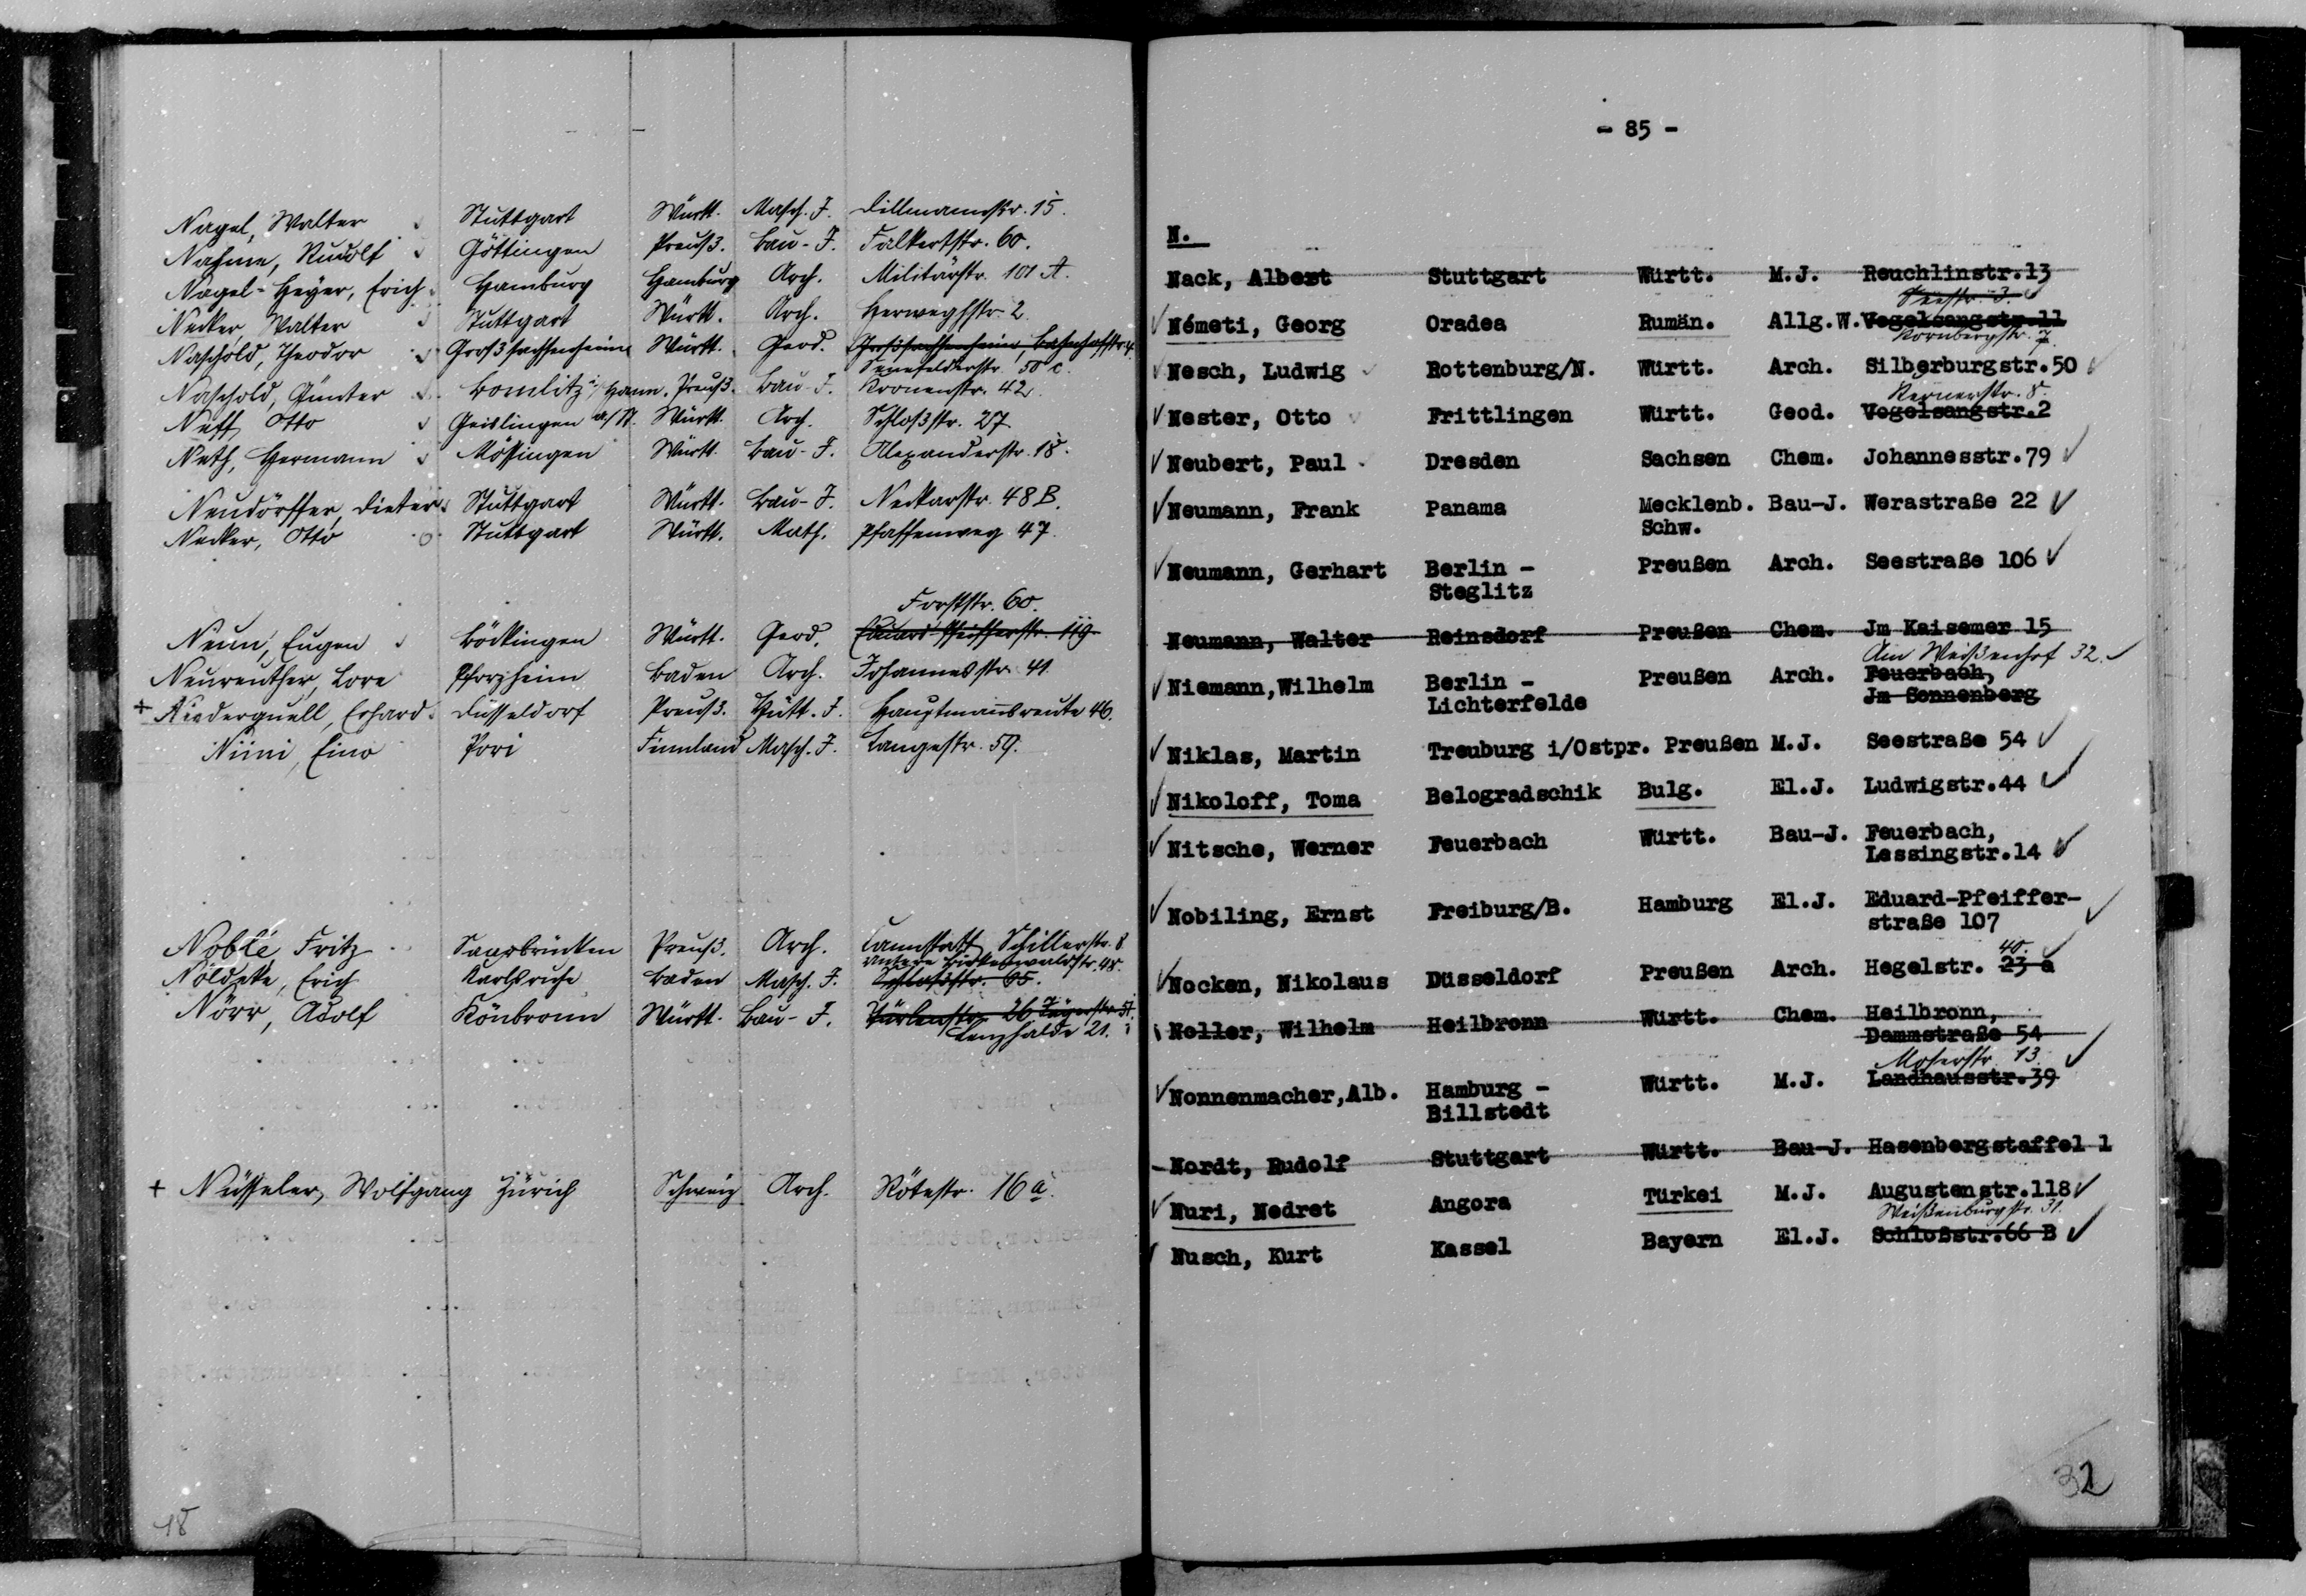 Nagel, Walter Stuttgart Württ. Masch. J. Dillmannstr. 15.
Nahme, Rudolf Göttingen Preuß. Bau-J. Falkertstr. 60.
Nagel-Heyer, Erich Hamburg Hamburg Arch. Militärstr. 101 A.
Necker Walter Stuttgart Württ. Arch. Herweghstr. 2.
Naschold, Theodor Großsachsenheim Württ. Geod. Großsachsenheim, Bahnhofstr. 4.
Sennefelderstr. 58 c.
Naschold, Günter Bomlitz i/Hann. Preuß. Bau-J. Kronenstr. 42.
Neff Otto Geislingen a/St. Württ. Arch. Schloßstr. 27
Neth, Hermann Mössingen Württ. Bau-J. Alexanderstr. 18.
Neudörffer, Dieter Stuttgart Württ. Bau-J. Neckarstr. 48 B.
Necker, Otto Stuttgart Württ. Math. Pfaffenweg 47.
Forststr. 60.
Neun, Eugen Böckingen Württ. Geod. Eduard Pfeifferstr. 119.
Neureuther, Lore Pforzheim Baden Arch. Johannesstr. 41.
+ Niederquell, Erhard Düsseldorf Preuß. Hütt. J. Hauptmannsreute 46.
Niini, Eino Pori Finnland Masch. J. Langestr. 59.
Noblé, Fritz Saarbrücken Preuß. Arch. Cannstatt, Schillerstr. 8
Untere Birkenwaldstr. 48.
Nöldeke, Erich Karlsruhe Baden Masch. J. Schloßstr. 65.
Nörr, Adolf Könbronn Württ. Bau-J. Türlenstr. 26 Jägerstr. 51.
Lenzhalde 21.
+ Nüsseler, Wolfgang Zürich Schweiz Arch. Rötestr. 16 a.
18
- 85 -
N.
Nack, Albert Stuttgart Württ. M.J. Reuchlinstr.13
Seestr. 3.
Németi, Georg Oradea Rumän. Allg.W. Vogelsangstr.11
Kornbergstr. 7.
Nesch, Ludwig Rottenburg/N. Württ. Arch. Silberburgstr.50
Kernerstr. 8.
Nester, Otto Frittlingen Württ. Geod. Vogelsangstr.2
Neubert, Paul Dresden Sachsen Chem. Johannesstr.79
Neumann, Frank Panama Mecklenb. Bau-J. Werastraße 22
Schw.
Neumann, Gerhart Berlin - Preußen Arch. Seestraße 106
Steglitz
Neumann, Walter Reinsdorf Preußen Chem. Jm Kaisemer 15
Am Weißenhof 32.
Niemann,Wilhelm Berlin - Preußen Arch. Feuerbach,
Lichterfelde Jm Sonnenberg
Niklas, Martin Treuburg i/Ostpr. Preußen M.J. Seestraße 54
Nikoloff, Toma Belogradschik Bulg. El.J. Ludwigstr.44
Nitsche, Werner Feuerbach Württ. Bau-J. Feuerbach,
Lessingstr.14
Nobiling, Ernst Freiburg/B. Hamburg El.J. Eduard-Pfeiffer-
straße 107
40.
Nocken, Nikolaus Düsseldorf Preußen Arch. Hegelstr. 23 a
Noller, Wilhelm Heilbronn Württ. Chem. Heilbronn,
Dammstraße 54
Moserstr. 13.
Nonnenmacher,Alb. Hamburg - Württ. M.J. Landhausstr.39
Billstedt
Nordt, Rudolf Stuttgart Württ. Bau-J. Hasenbergstaffel 1
Nuri, Nedret Angora Türkei M.J. Augustenstr.118
Weißenburgstr. 31.
Nusch, Kurt Kassel Bayern El.J. Schloßstr.66 B
32